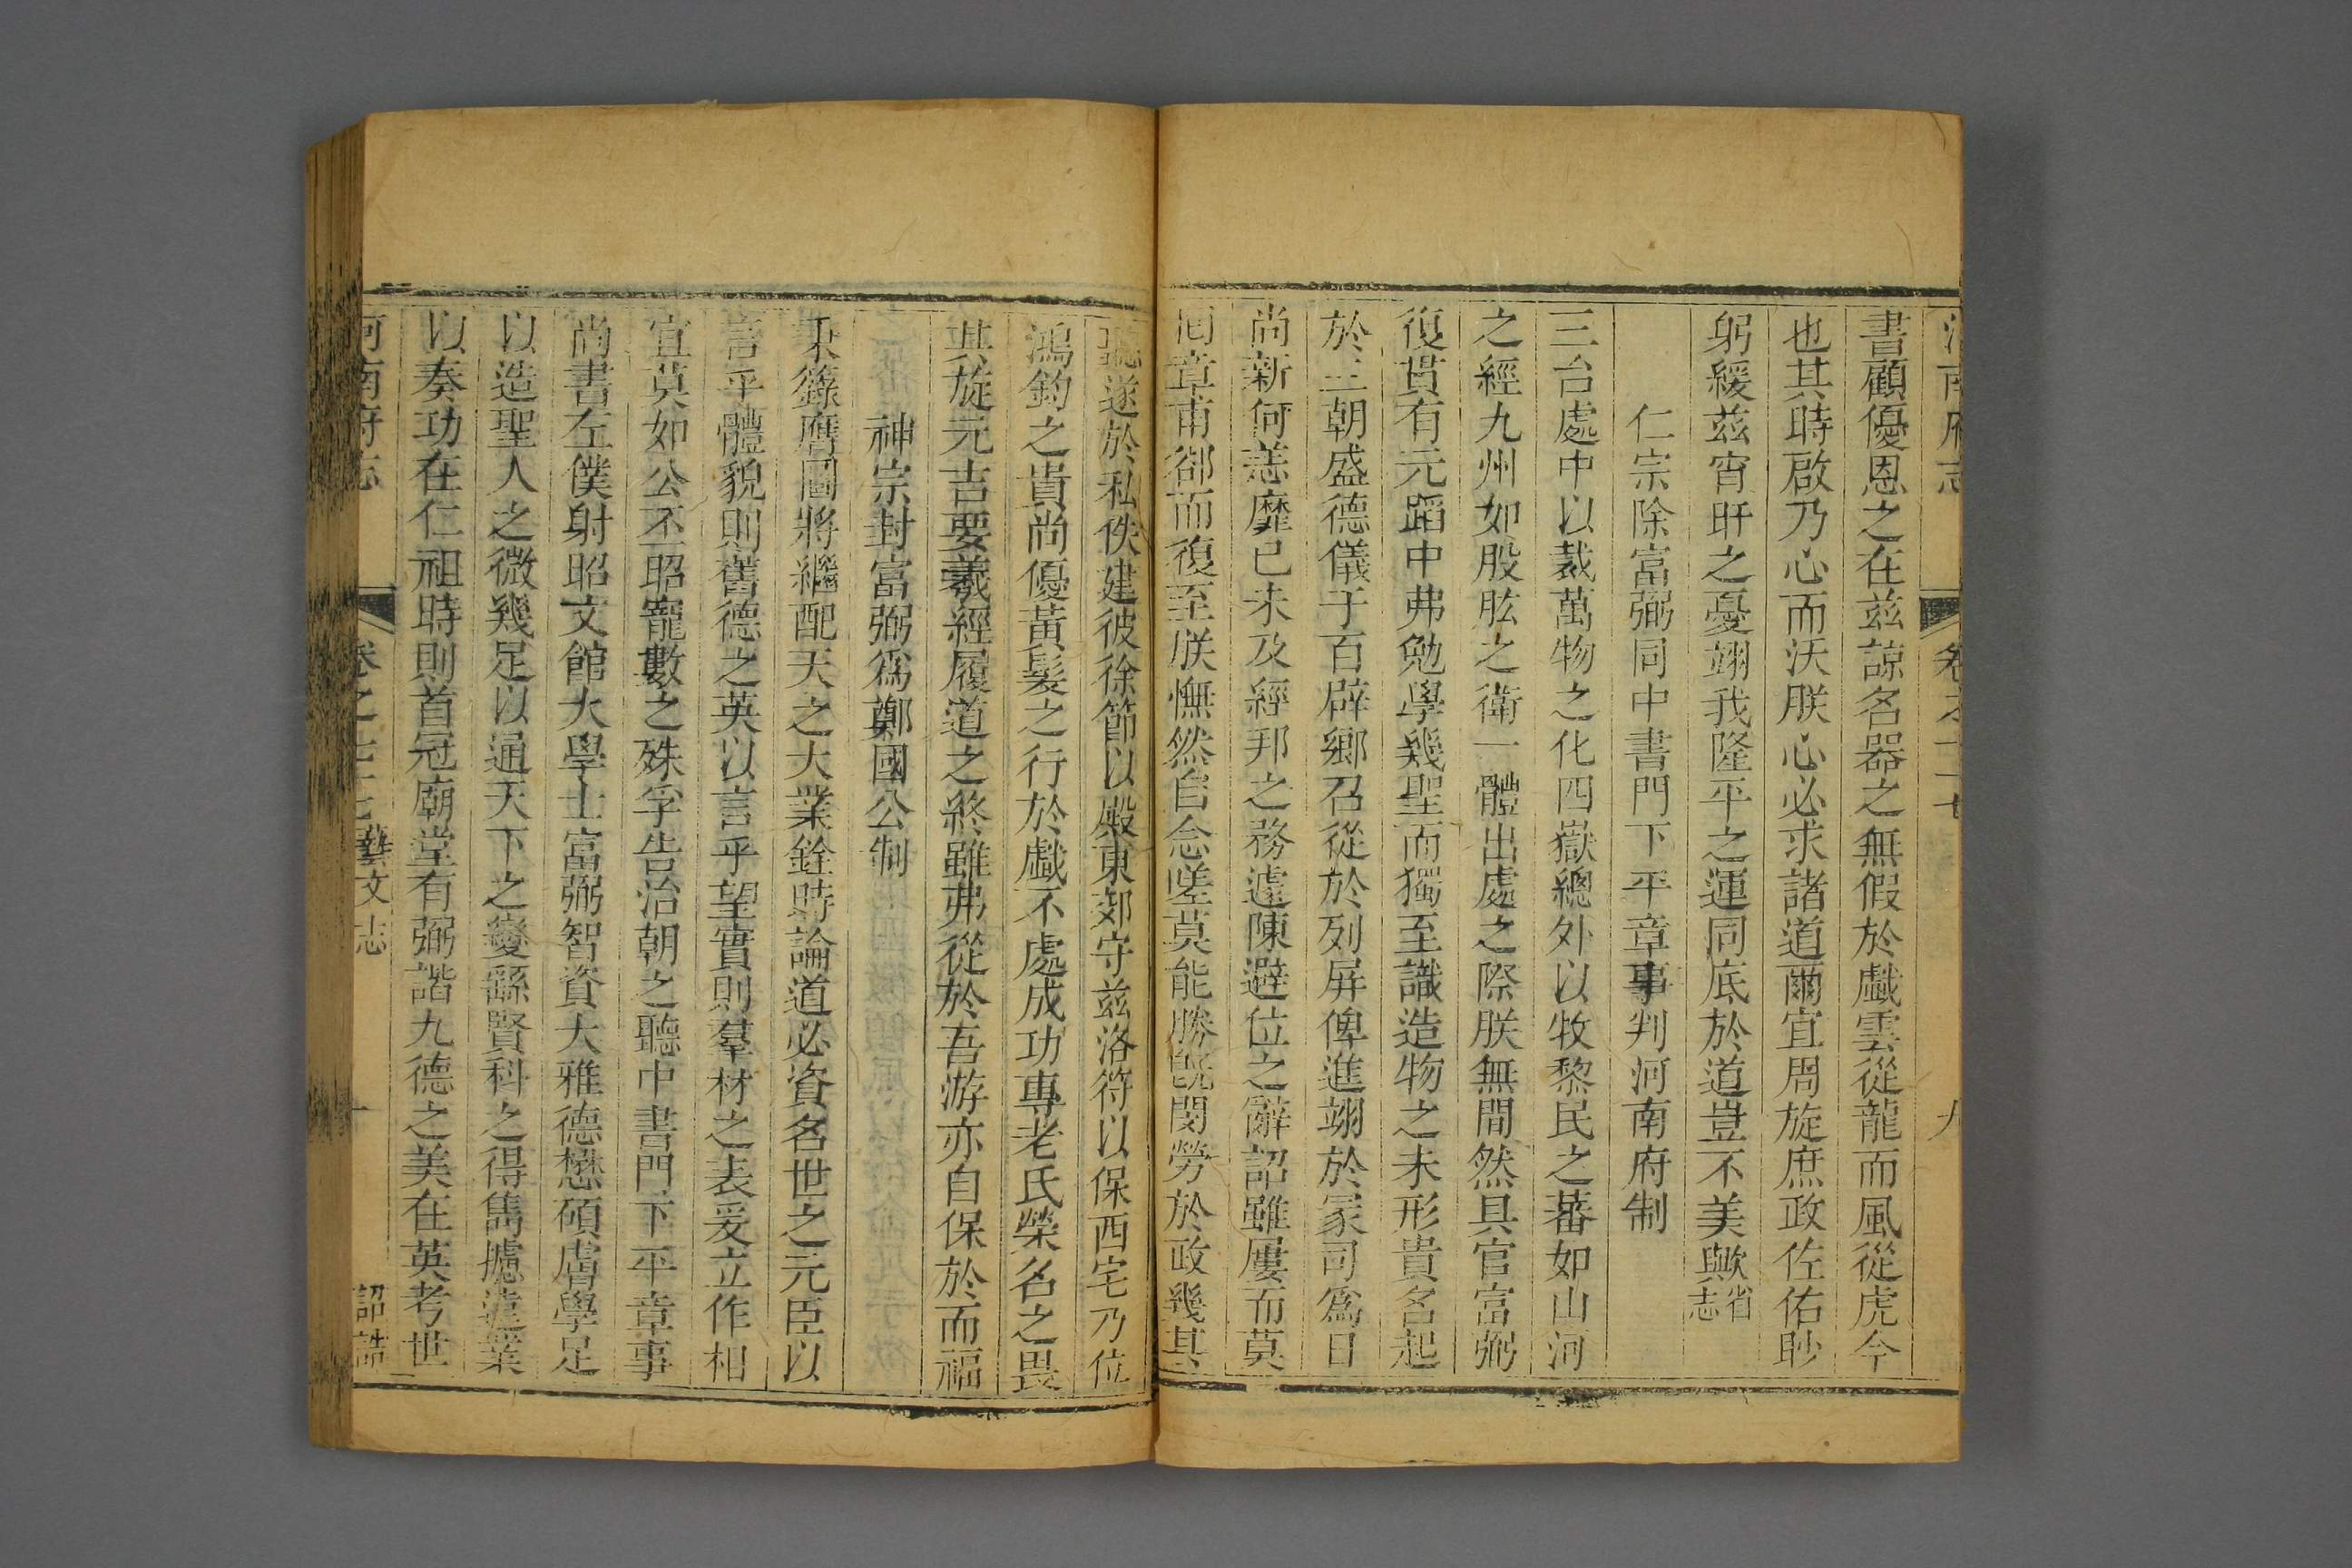 河南府志
卷之七十七
九
書顧優恩之在茲諒名器之無假於戲雲從龍而風從虎今
也其時啟乃心而沃朕心必求諸道爾宜周旋庶政佐佑眇
躬緩茲宵旰之憂翊我隆平之運同底於道豈不美歟省志
仁宗除富弼同中書門下平章事判河南府制
三台處中以裁萬物之化四嶽總外以牧黎民之蕃如山河
之經九州如股肱之衛一體出處之際朕無間然具官富弼
復貫有元蹈中弗勉學幾聖而獨至識造物之未形貴名起
於三朝盛德儀于百辟鄉召從於列屏俾進翊於冢司為日
尚新何恙靡已未及經邦之務遽陳避位之辭詔雖屢而莫
囘章甫卻而復至朕憮然自念嗟莫能勝旣閔勞於政幾其
聽遂於私佚建彼徐節以殿東郊守茲洛符以保西宅乃位
鴻鈞之貴尚優黃髮之行於戲不處成功專老氏榮名之畏
其旋元吉要羲經履道之終雖弗從於吾游亦自保於而福
神宗封富弼為鄭國公制
秉籙膺圖將繼配天之大業銓時論道必資名世之元臣以
言乎體貌則舊德之英以言乎望實則羣材之表爰立作相
宜莫如公丕昭寵數之殊孚告治朝之聽中書門下平章事
尚書左僕射昭文館大學士富弼智資大雅德懋碩膚學足
以造聖人之微幾足以通天下之變繇賢科之得雋攄遠業
以奏功在仁祖時則首冠廟堂有弼諧九德之美在英考世
河南府志
卷之七十七
藝文志
詔誥